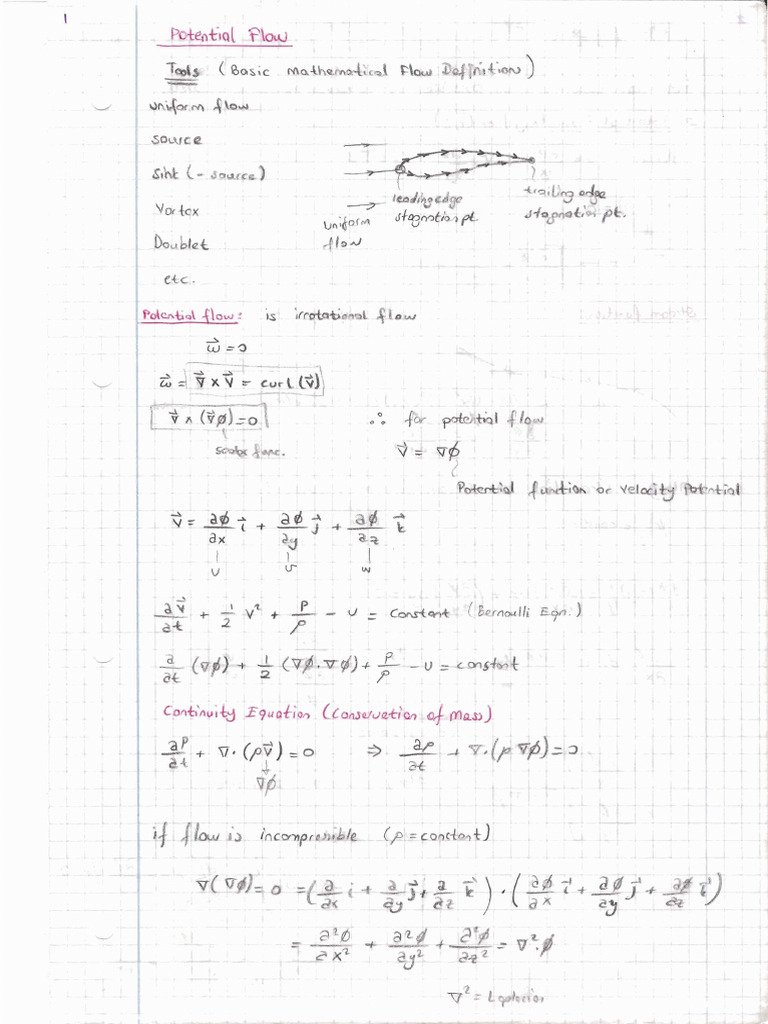 1
Potential Flow
Tools (Basic Mathematical Flow Definition)
uniform flow
source
Sink (- source)
Vortex
Doublet
etc.
uniform
flow
leading edge
stagnation pt.
trailing edge
stagnation pt.
Potential flow: is irrotational flow
ω⃗ = 0
ω⃗ = ∇⃗ × V⃗ = curl (V⃗)
∇⃗ × (∇⃗φ) = 0 ∴ for potential flow
scalar func. V⃗ = ∇φ
Potential function or Velocity Potential
V⃗ = ∂φ/∂x i⃗ + ∂φ/∂y j⃗ + ∂φ/∂z k⃗
u v w
∂V⃗/∂t + 1/2 V² + P/ρ - U = constant (Bernoulli Eqn.)
∂/∂t (∇φ) + 1/2 (∇φ.∇φ) + P/ρ - U = constant
Continuity Equation (Conservation of Mass)
∂ρ/∂t + ∇.(ρV⃗) = 0 ⇒ ∂ρ/∂t + ∇.(ρ∇φ) = 0
∇φ
if flow is incompressible (ρ = constant)
∇(∇φ) = 0 = (∂/∂x i + ∂/∂y j⃗ + ∂/∂z k⃗) . (∂φ/∂x i⃗ + ∂φ/∂y j⃗ + ∂φ/∂z k⃗)
= ∂²φ/∂x² + ∂²φ/∂y² + ∂²φ/∂z² = ∇².φ
∇² = Laplacian